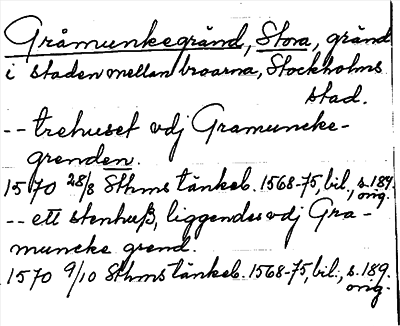 Gråmunkegränd, Stora, gränd
i staden mellan broarna, Stockholms
stad.
-- trehuset vdj Gramuncke-
grenden.
1570 28/8 Sthms tänkeb. 1568-75, bil., s. 189.
orig.
-- ett stenhuß, liggendes vdj Gra-
muncke grend.
1570 9/10 Sthms tänkeb. 1568-75, bil., s. 189.
orig.